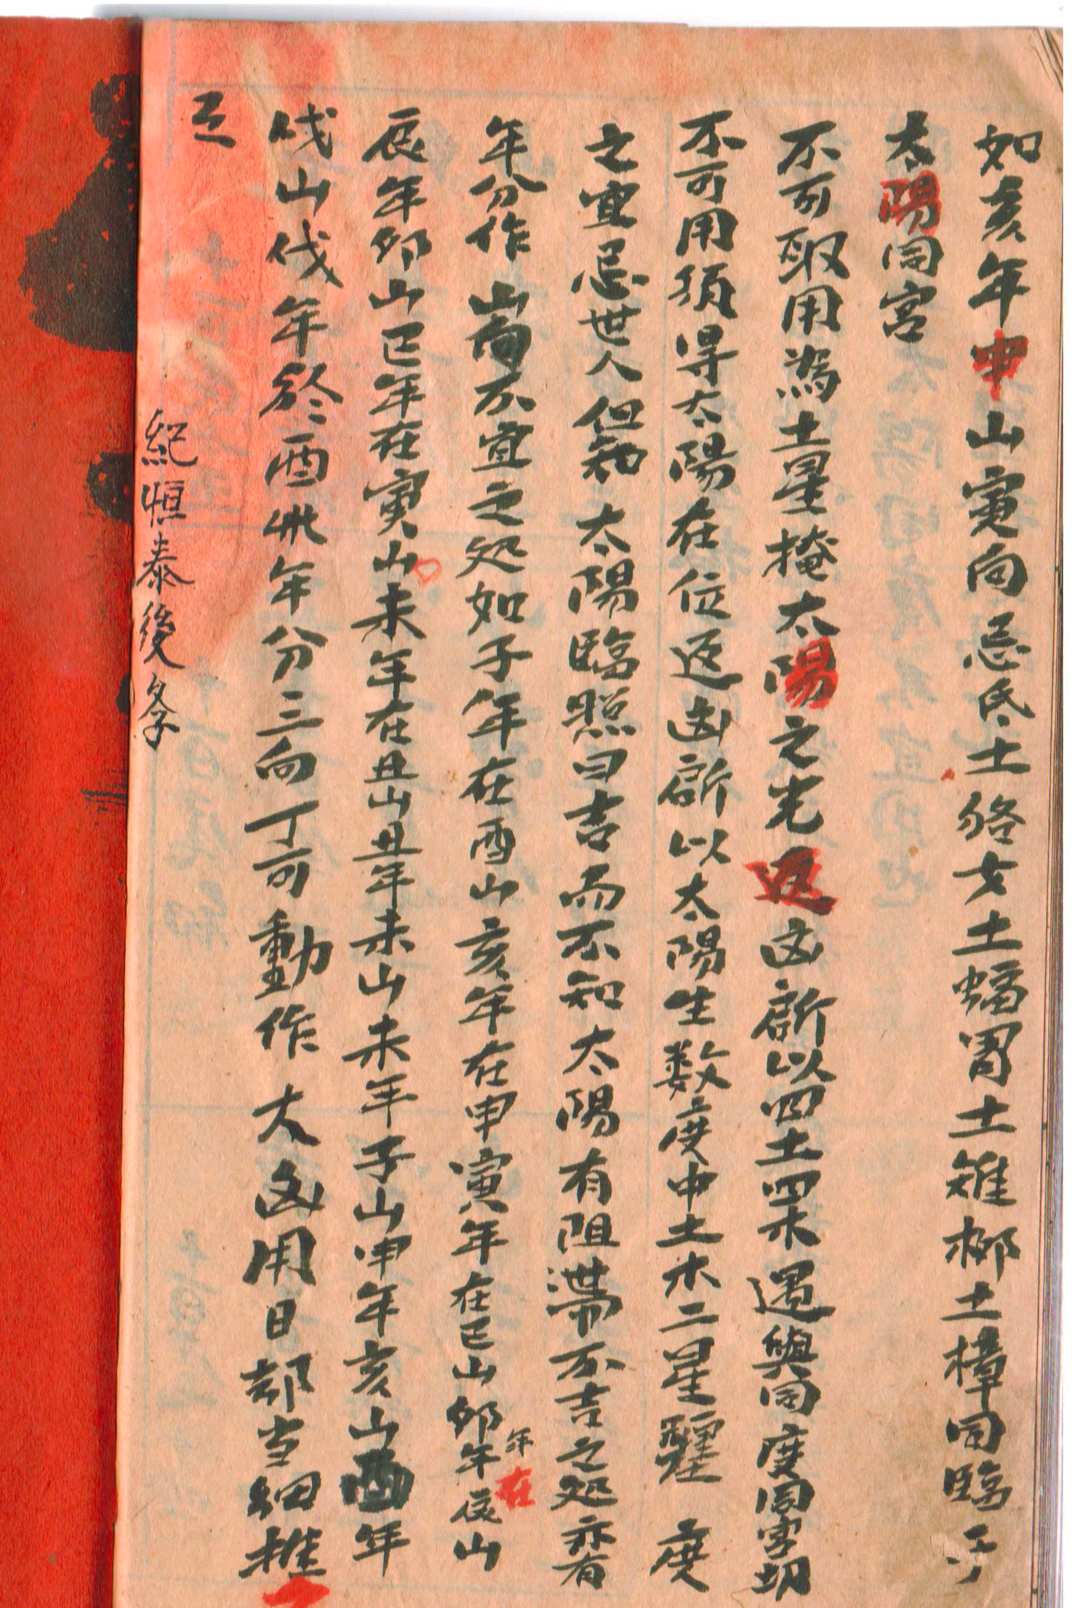 如亥年申山寅向忌氐土貉女土蝠胃土雉柳土樟同臨于
太陽同宮
不可取用為土星掩太陽之光返凶所以四土四木遇與同度同宮切
不可用須得太陽在位返凶所以太陽生数度中土木二星躔度
之宜忌世人但知太陽臨照曰吉而不知太陽有阻滯不吉之処亦有
年分作山向不宜之処如子年在酉山亥年在申寅年在巳山卯年辰山
年在
辰年卯山巳年在寅山未年在丑山丑年未山未年子山申年亥山酉年
戌山戌年於酉此年分三向丁可動作大凶用日却当細推
之
紀恒泰後